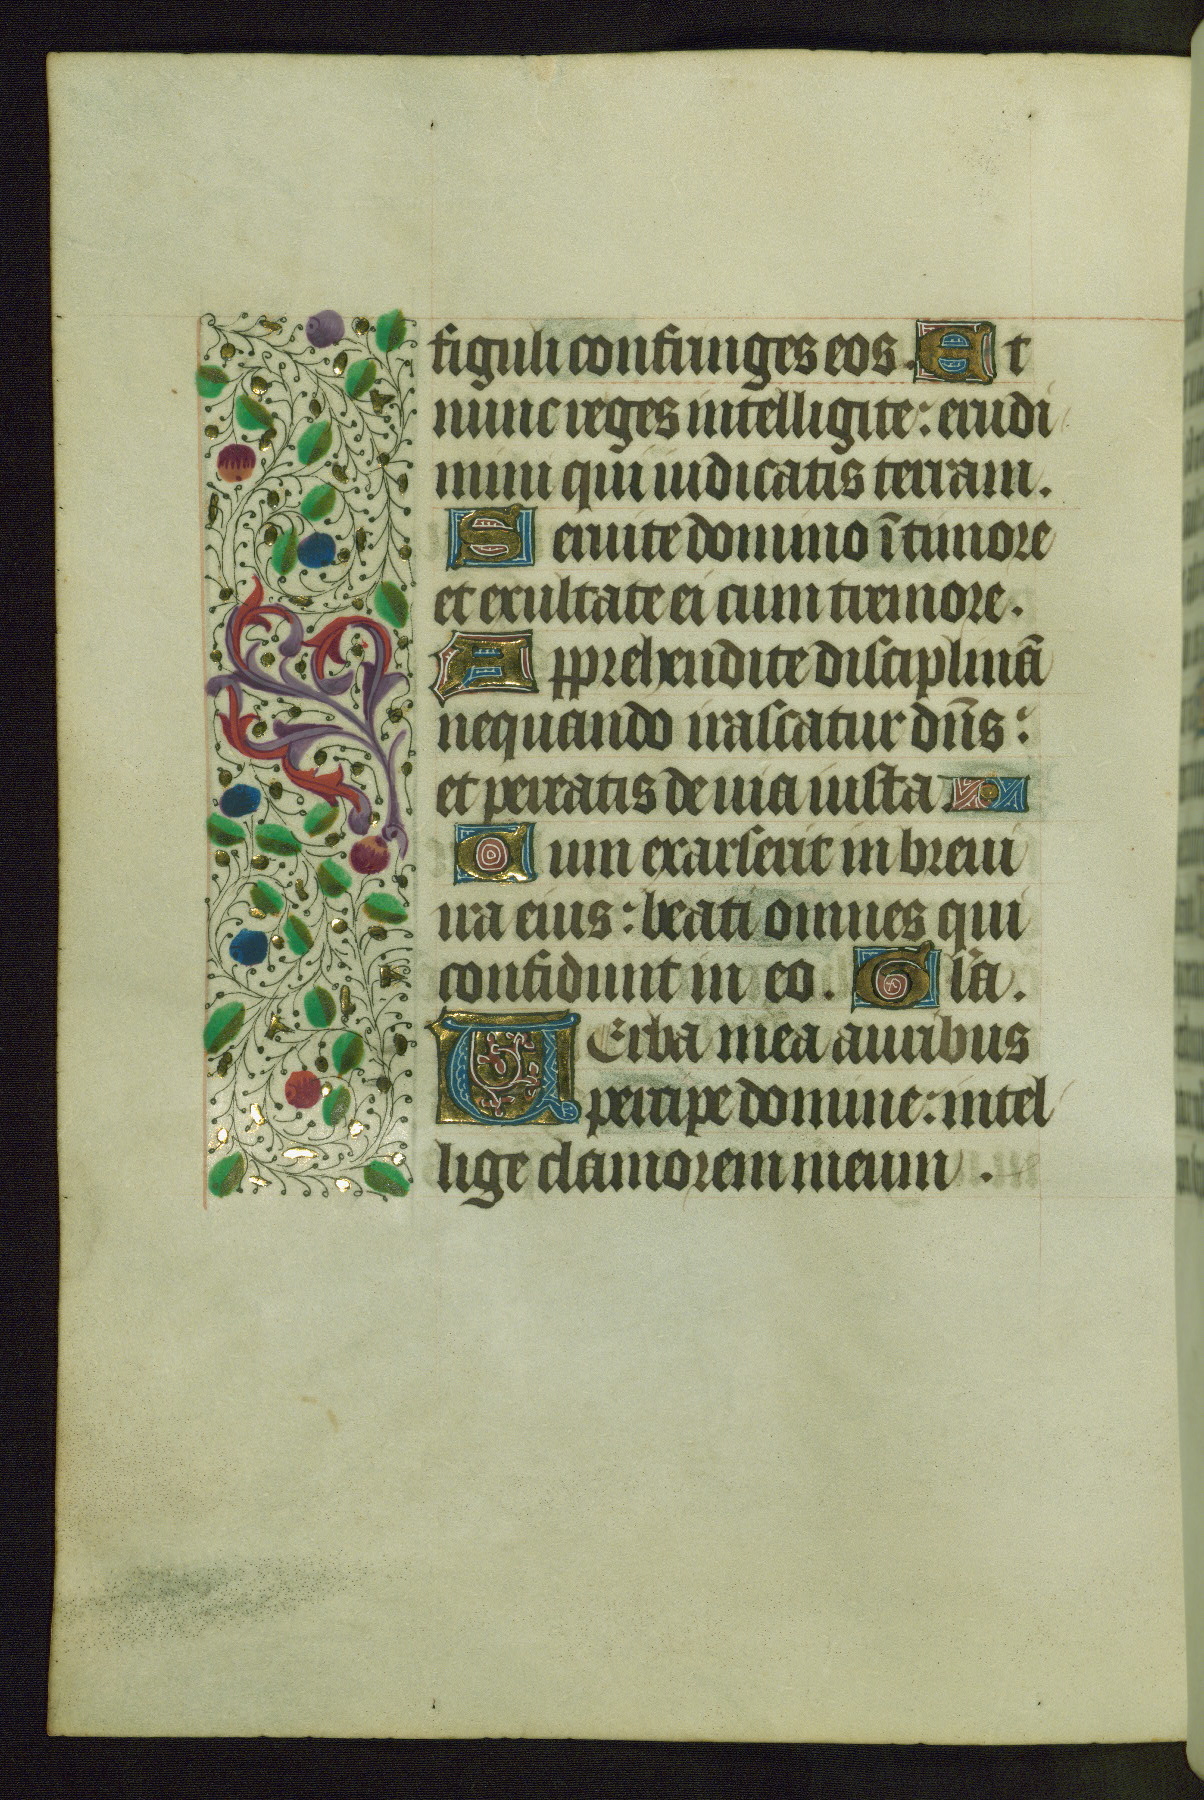 figuli confringes eos. Et
nunc reges intelligite: erudi
mini qui iudicatis terram.
Seruite domino ī timore
et exultate ei cum tremore.
Apprehendite disciplinā
nequando irascatur dn̄s:
et pereatis de uia iusta
Cum exarserit in breui
ira eius: beati omnes qui
confidunt in eo. Gl̄a.
UErba mea auribus
percipe domine: intel
lige clamorem meum.